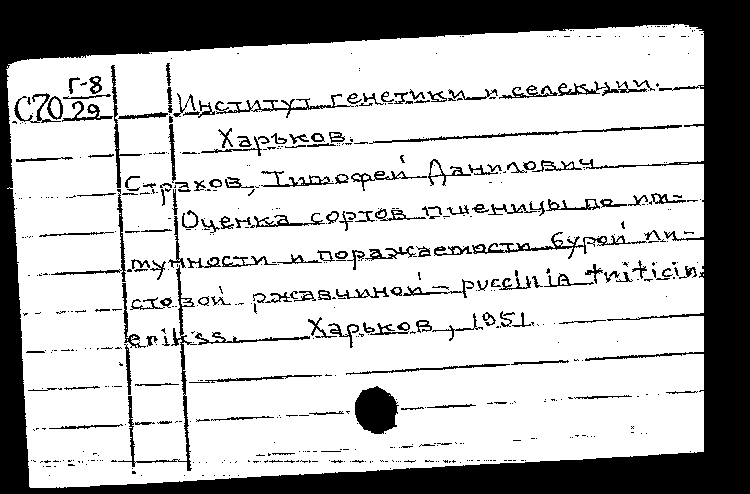 Г-8
С70 29
Институт генетики и селекции.
Харьков.
Страхов, Тимофей Данилович
Оценка сортов пшеницы по им-
мунности и поражаемости бурой ли-
стовой ржавчиной – puccinia triticina
erikss. Харьков, 1951.